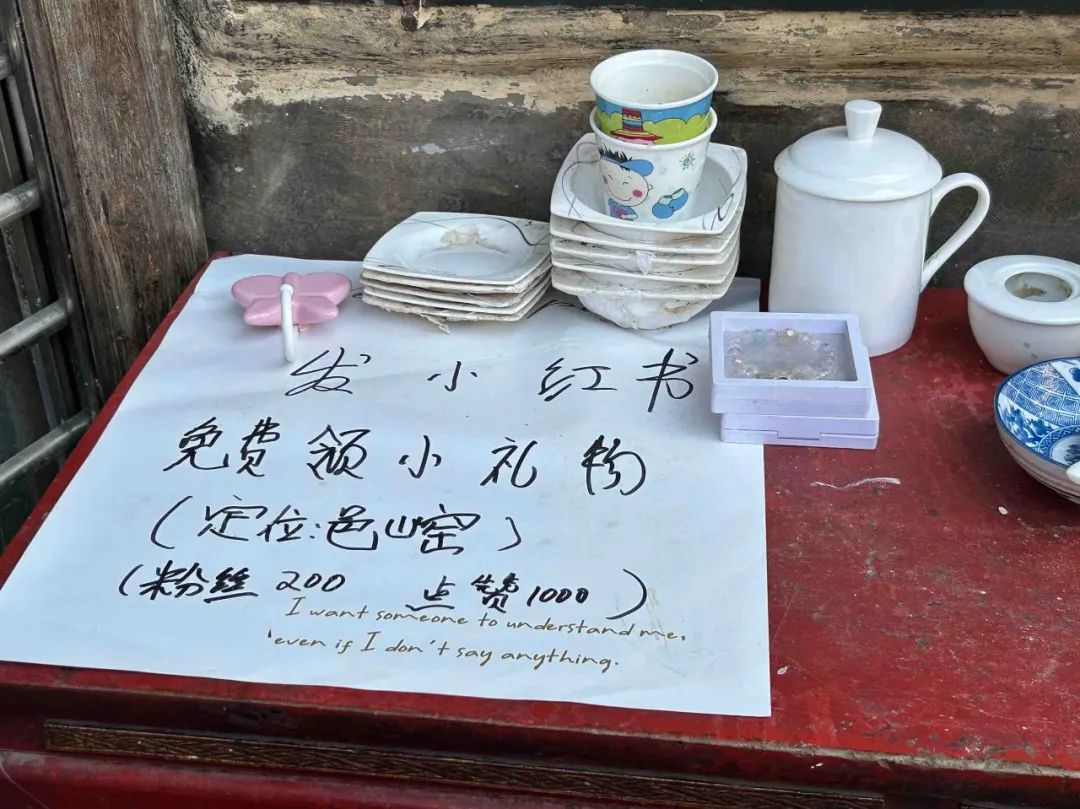 发小红书
免费领小礼物
(定位:邑山窑)
(粉丝200 点赞1000)
I want someone to understand me,
'even if I don't say anything.